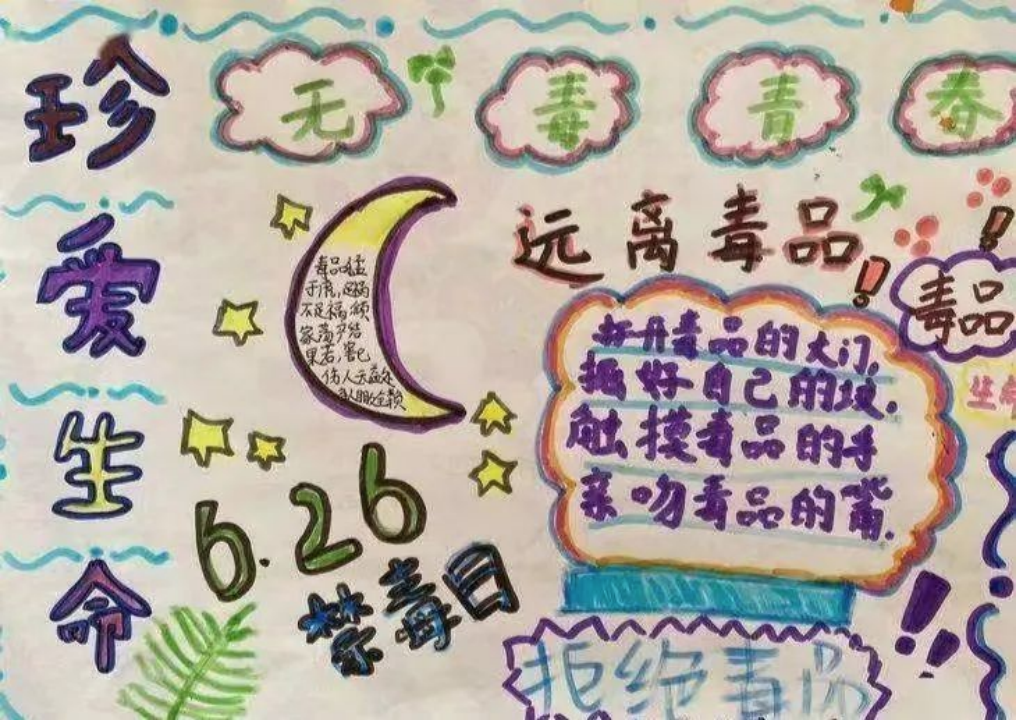 珍爱生命
无毒青春
远离毒品!
毒品猛
于虎,吸毒
不是福,倾
家荡产
果若,害己
伤人天
毒品
打开毒品的大门,
挖好自己的坟.
触摸毒品的手
亲吻毒品的嘴.
生命
6.26
禁毒日
!!
拒绝毒品